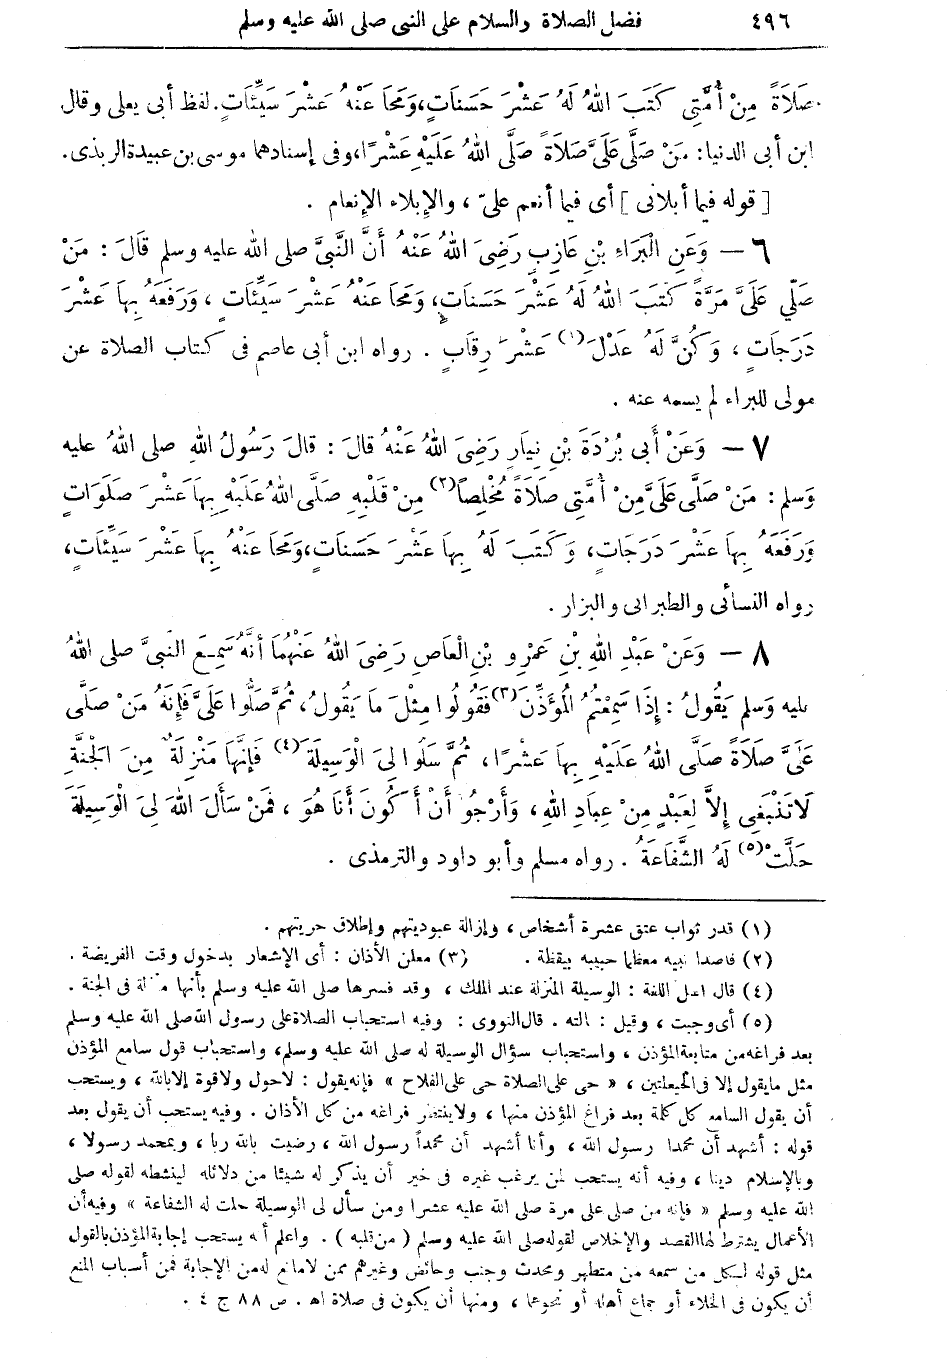 ٤٩٦ فضل الصلاة والسلام على النبى صلى الله عليه وسلم
صَلَاةً مِنْ أُمَّتِى كَتَبَ اللهُ لَهُ عَشْرَ حَسَنَاتٍ، وَمَحَا عَنْهُ عَشْرَ سَيِّئَاتٍ. لفظ أبى يعلى وقال
ابن أبى الدنيا: مَنْ صَلَّى عَلَىَّ صَلَاةً صَلَّى اللهُ عَلَيْهِ عَشْرًا، وفى إسنادهما موسى بن عبيدة الربذى.
[ قوله فيما أبلانى ] أى فيما أنعم علىّ ، والإبلاء الإنعام .
٦ — وَعَنِ الْبَرَاءِ بْنِ عَازِبٍ رَضِىَ اللهُ عَنْهُ أَنَّ النَّبِىَّ صلى الله عليه وسلم قَالَ : مَنْ
صَلَّى عَلَىَّ مَرَّةً كَتَبَ اللهُ لَهُ عَشْرَ حَسَنَاتٍ، وَمَحَا عَنْهُ عَشْرَ سَيِّئَاتٍ ، وَرَفَعَهُ بِهَا عَشْرَ
دَرَجَاتٍ ، وَكُنَّ لَهُ عَدْلَ (١) عَشْرِ رِقَابٍ . رواه ابن أبى عاصم فى كتاب الصلاة عن
مولى للبراء لم يسمه عنه .
٧ — وَعَنْ أَبِى بُرْدَةَ بْنِ نِيَارٍ رَضِىَ اللهُ عَنْهُ قَالَ : قَالَ رَسُولُ اللهِ صلى اللهُ عليه
وَسلم : مَنْ صَلَّى عَلَىَّ مِنْ أُمَّتِى صَلَاةً مُخْلِصاً (٢) مِنْ قَلْبِهِ صَلَّى اللهُ عَلَيْهِ بِهَا عَشْرَ صَلَوَاتٍ
وَرَفَعَهُ بِهَا عَشْرَ دَرَجَاتٍ، وَكَتَبَ لَهُ بِهَا عَشْرَ حَسَنَاتٍ، وَمَحَا عَنْهُ بِهَا عَشْرَ سَيِّئَاتٍ،
رواه النسائى والطبرانى والبزار .
٨ — وَعَنْ عَبْدِ اللهِ بْنِ عَمْرِو بْنِ الْعَاصِ رَضِىَ اللهُ عَنْهُمَا أَنَّهُ سَمِعَ النبىَّ صلى اللهُ
عليه وَسلم يَقُولُ : إِذَا سَمِعْتُمُ الْمُؤَذِّنَ (٣) فَقُولُوا مِثْلَ مَا يَقُولُ، ثُمَّ صَلُّوا عَلَىَّ فَإِنَّهُ مَنْ صَلَّى
عَلَىَّ صَلَاةً صَلَّى اللهُ عَلَيْهِ بِهَا عَشْرًا، ثُمَّ سَلُوا لِىَ الْوَسِيلَةَ (٤) فَإِنَّهَا مَنْزِلَةٌ مِنَ الْجَنَّةِ
لَا تَنْبَغِى إِلَّا لِعَبْدٍ مِنْ عِبَادِ اللهِ، وَأَرْجُو أَنْ أَكُونَ أَنَا هُوَ ، فَمَنْ سَأَلَ اللهَ لِىَ الْوَسِيلَةَ
حَلَّتْ (٥) لَهُ الشَّفَاعَةُ . رواه مسلم وأبو داود والترمذى .
(١) قدر ثواب عتق عشرة أشخاص ، وإزالة عبوديتهم وإطلاق حريتهم .
(٢) قاصدا نبيه معظما حبيبه بيقظة . (٣) معلن الأذان : أى الإشعار بدخول وقت الفريضة .
(٤) قال اهل اللغة : الوسيلة المنزلة عند الملك ، وقد فسرها صلى الله عليه وسلم بأنها منزلة فى الجنة .
(٥) أى وجبت ، وقيل : نالته . قال النووى : وفيه استحباب الصلاة على رسول الله صلى الله عليه وسلم
بعد فراغه من متابعة المؤذن ، واستحباب سؤال الوسيلة له صلى الله عليه وسلم، واستحباب قول سامع المؤذن
مثل ما يقول إلا فى الحيعلتين ، « حى على الصلاة حى على الفلاح » فإنه يقول : لا حول ولا قوة إلا بالله ، ويستحب
أن يقول السامع كل كلمة بعد فراغ المؤذن منها ، ولا ينتظر فراغه من كل الأذان . وفيه يستحب أن يقول بعد
قوله : أشهد أن محمدا رسول الله ، وأنا أشهد أن محمداً رسول الله ، رضيت بالله ربا ، وبمحمد رسولا ،
وبالإسلام دينا ، وفيه أنه يستحب لمن يرغب غيره فى خير أن يذكر له شيئا من دلائله لينشطه لقوله صلى
الله عليه وسلم « فإنه من صلى على مرة صلى الله عليه عشرا ومن سأل لى الوسيلة حلت له الشفاعة » وفيه أن
الأعمال يشترط لها القصد والإخلاص لقوله صلى الله عليه وسلم ( من قلبه ) . واعلم أنه يستحب إجابة المؤذن بالقول
مثل قوله لكل من سمعه من متطهر ومحدث وجنب وحائض وغيرهم ممن لا مانع له من الإجابة فمن أسباب المنع
أن يكون فى الخلاء أو جماع أهله أو نحوهما ، ومنها أن يكون فى صلاة اهـ . ص ٨٨ ج ٤ .